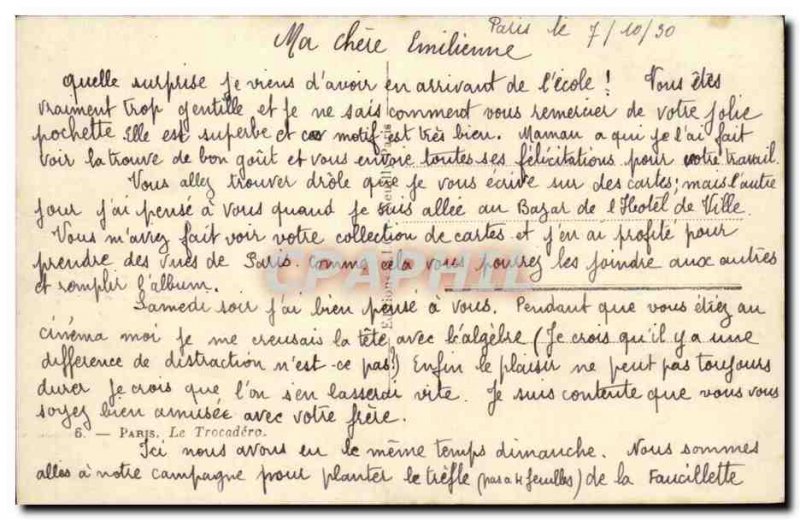 Paris le 7/10/30
Ma chère Emilienne
quelle surprise je viens d'avoir en arrivant de l'école ! Vous êtes
vraiment trop gentille et je ne sais comment vous remercier de votre jolie
pochette elle est superbe et ce motif est très bien. Maman a qui je l'ai fait
voir la trouve de bon goût et vous envoie toutes ses félicitations pour votre travail.
Vous allez trouver drôle que je vous écrive sur des cartes; mais l'autre
jour j'ai pensé à vous quand je suis allée au Bazar de l'Hotel de Ville.
Vous m'avez fait voir votre collection de cartes et j'en ai profité pour
prendre des vues de Paris. comme cela vous pourrez les joindre aux autres
et remplir l'album.
Samedi soir j'ai bien pensé à vous. Pendant que vous étiez au
cinéma moi je me creusais la tête avec l'algèbre (Je crois qu'il y a une
différence de distraction n'est-ce pas!) Enfin le plaisir ne peut pas toujours
durer je crois que l'on s'en lasserai vite. Je suis contente que vous vous
soyez bien amusée avec votre frère.
6. — PARIS. Le Trocadéro.
Ici nous avons eu le même temps dimanche. Nous sommes
allés à notre campagne pour planter le trèfle (pas a 4 feuilles) de la Faucillette
CPAPHIL